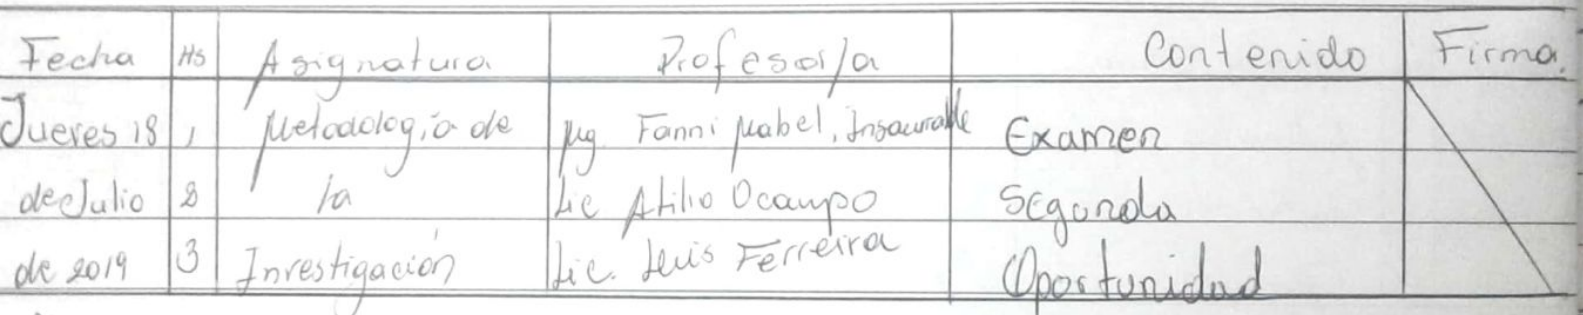 Fecha Hs Asignatura Profesor/a Contenido Firma.
Jueves 18 1 Metodología de Mg. Fanni Mabel, Insaurralde Examen
de Julio 2 la Lic Atilio Ocampo Segunda
de 2019 3 Investigación Lic. Luis Ferreira Oportunidad